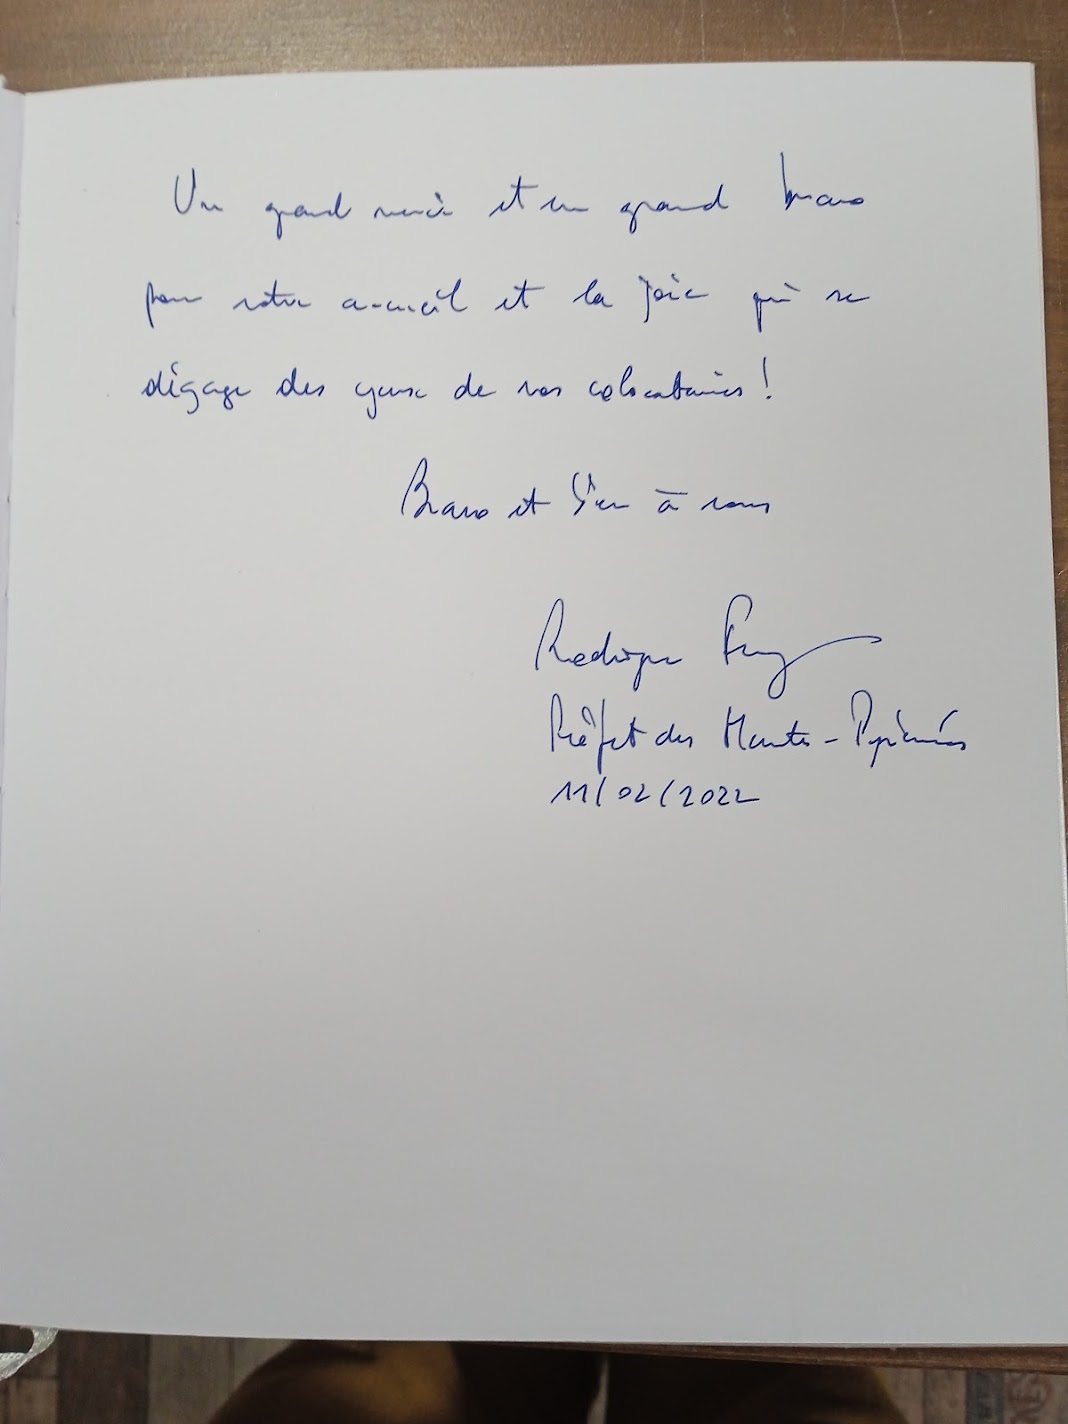 Un grand merci et un grand bravo
pour votre accueil et la joie qui se
dégage des yeux de vos colocataires !
Bravo et bien à vous
Rodrigue Furcy
Préfet des Hautes-Pyrénées
11/02/2022